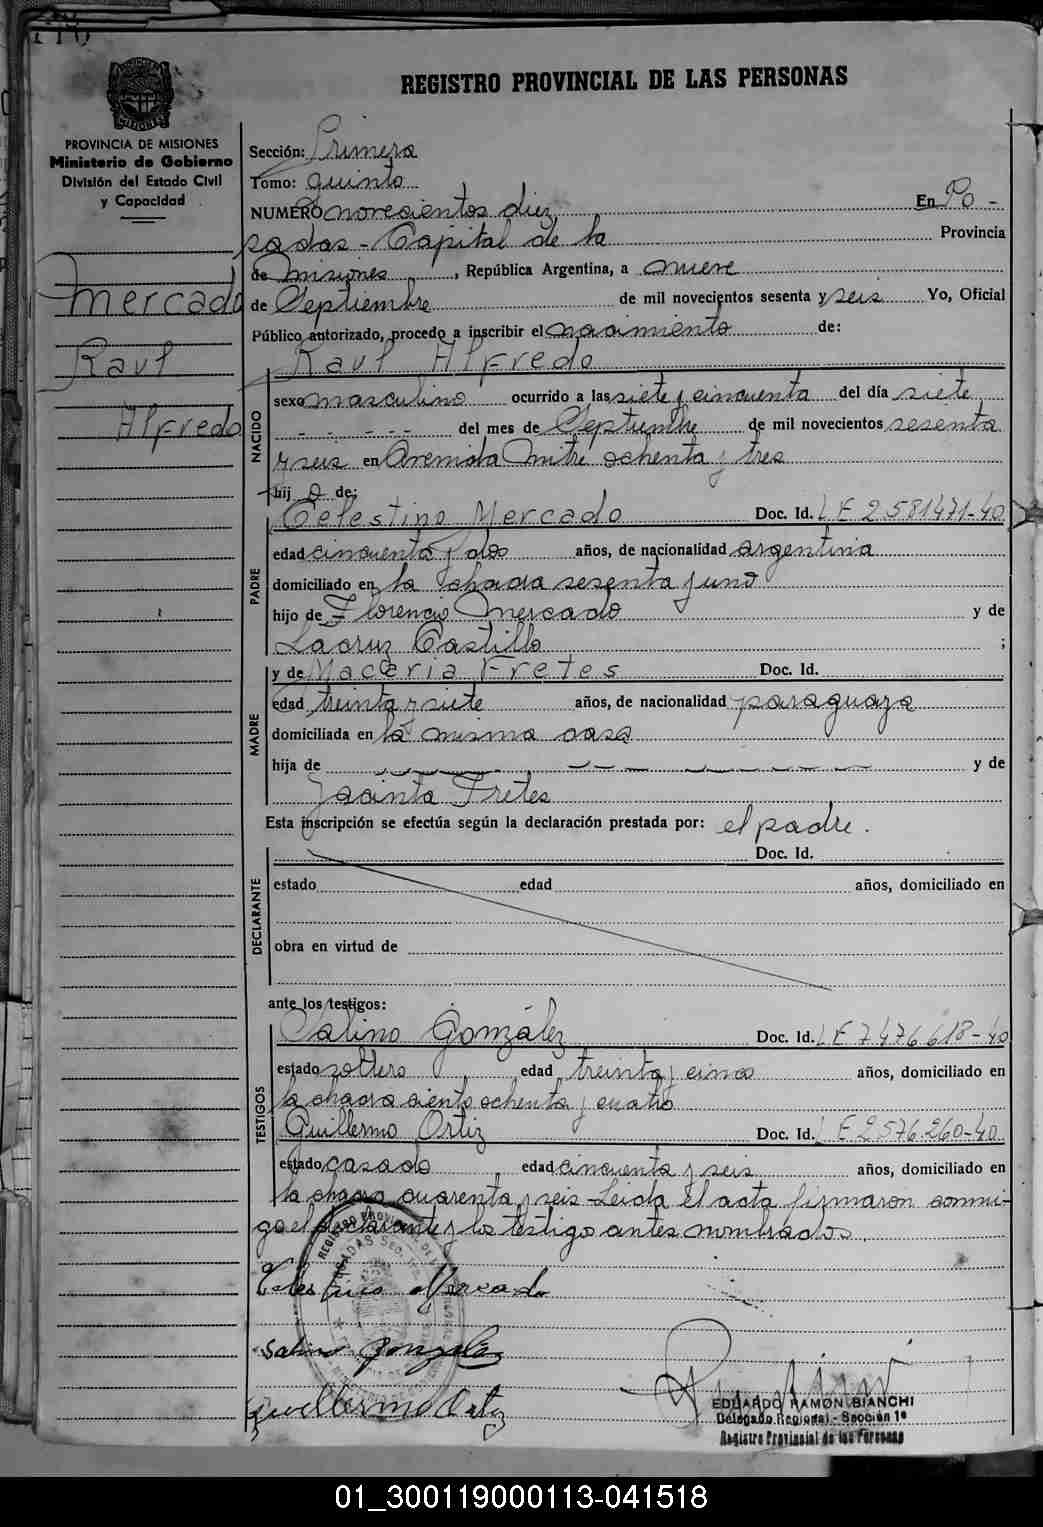 REGISTRO PROVINCIAL DE LAS PERSONAS
PROVINCIA DE MISIONES
Ministerio de Gobierno
División del Estado Civil
y Capacidad
Mercado
Raul
Alfredo
Sección: Primera
Tomo: quinto
NUMERO novecientos diez En Po-
sadas - Capital de la Provincia
de Misiones, República Argentina, a nueve
de Septiembre de mil novecientos sesenta y seis Yo, Oficial
Público autorizado, procedo a inscribir el nacimiento de:
Raul Alfredo
NACIDO
sexo masculino ocurrido a las siete y cincuenta del día siete
del mes de Septiembre de mil novecientos sesenta
y seis en Avenida Mitre ochenta y tres
hijo de:
PADRE
Celestino Mercado Doc. Id. LE 2581471-40
edad cincuenta y dos años, de nacionalidad argentina
domiciliado en la chacra sesenta y uno
hijo de Florencio Mercado y de
Lacruz Castillo ;
MADRE
y de Maceria Fretes Doc. Id.
edad treinta y siete años, de nacionalidad paraguaya
domiciliada en la misma casa
hija de y de
Jacinta Fretes
Esta inscripción se efectúa según la declaración prestada por: el padre.
DECLARANTE
Doc. Id.
estado edad años, domiciliado en
obra en virtud de
ante los testigos:
TESTIGOS
Salino González Doc. Id. LE 7.476.618-40
estado soltero edad treinta y cinco años, domiciliado en
la chacra ciento ochenta y cuatro
Guillermo Ortiz Doc. Id. LE 2576.260-40
estado casado edad cincuenta y seis años, domiciliado en
la chacra cuarenta y seis - Leida el acta firmaron conmi-
go el declarante y los testigo antes nombrados
Celestino Mercado
Salino Gonzalez
Guillermo Ortiz
EDUARDO RAMON BIANCHI
Delegado Regional - Sección 1ª
Registro Provincial de las Personas
01_300119000113-041518